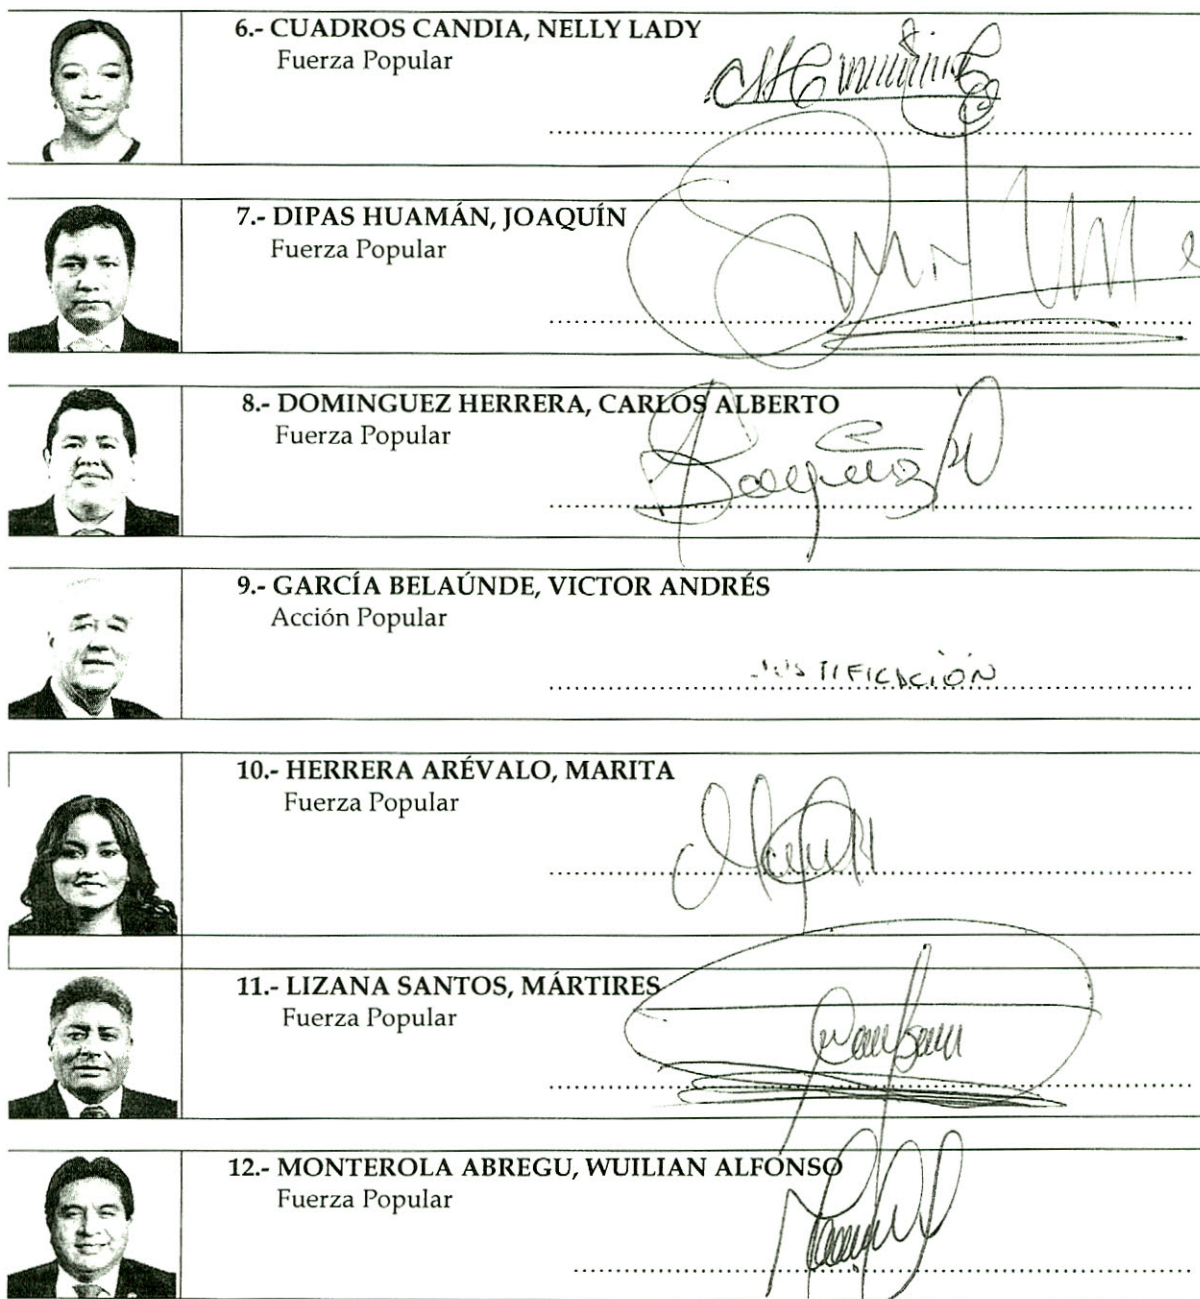 6.- CUADROS CANDIA, NELLY LADY
Fuerza Popular
7.- DIPAS HUAMÁN, JOAQUÍN
Fuerza Popular
8.- DOMINGUEZ HERRERA, CARLOS ALBERTO
Fuerza Popular
9.- GARCÍA BELAÚNDE, VICTOR ANDRÉS
Acción Popular
JUSTIFICACIÓN
10.- HERRERA ARÉVALO, MARITA
Fuerza Popular
11.- LIZANA SANTOS, MÁRTIRES
Fuerza Popular
12.- MONTEROLA ABREGU, WUILIAN ALFONSO
Fuerza Popular